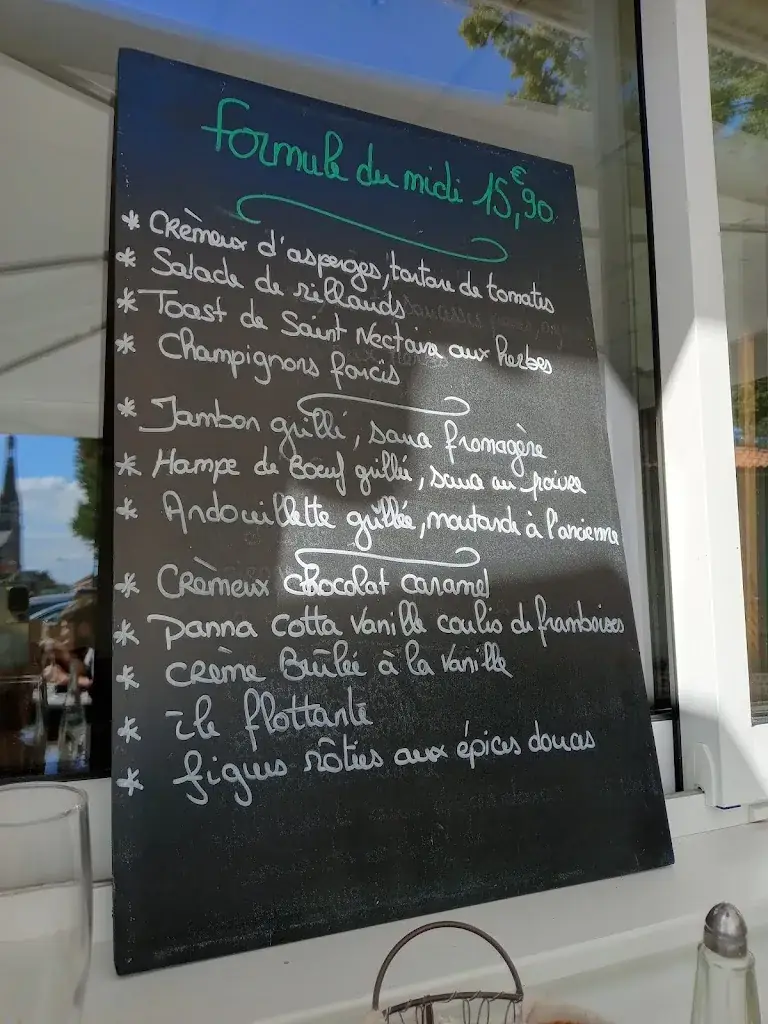 formule du midi 15,90 €
* Crèmeux d'asperges, tartare de tomates
* Salade de rillauds
* Toast de Saint Nectaire aux herbes
* Champignons farcis
* Jambon grillé, sauce fromagère
* Hampe de Boeuf grillée, sauce au poivre
* Andouillette grillée, moutarde à l'ancienne
* Crèmeux chocolat caramel
* Panna cotta vanille coulis de framboises
* Crème Brûlée à la vanille
* île flottante
* figues rôties aux épices douces